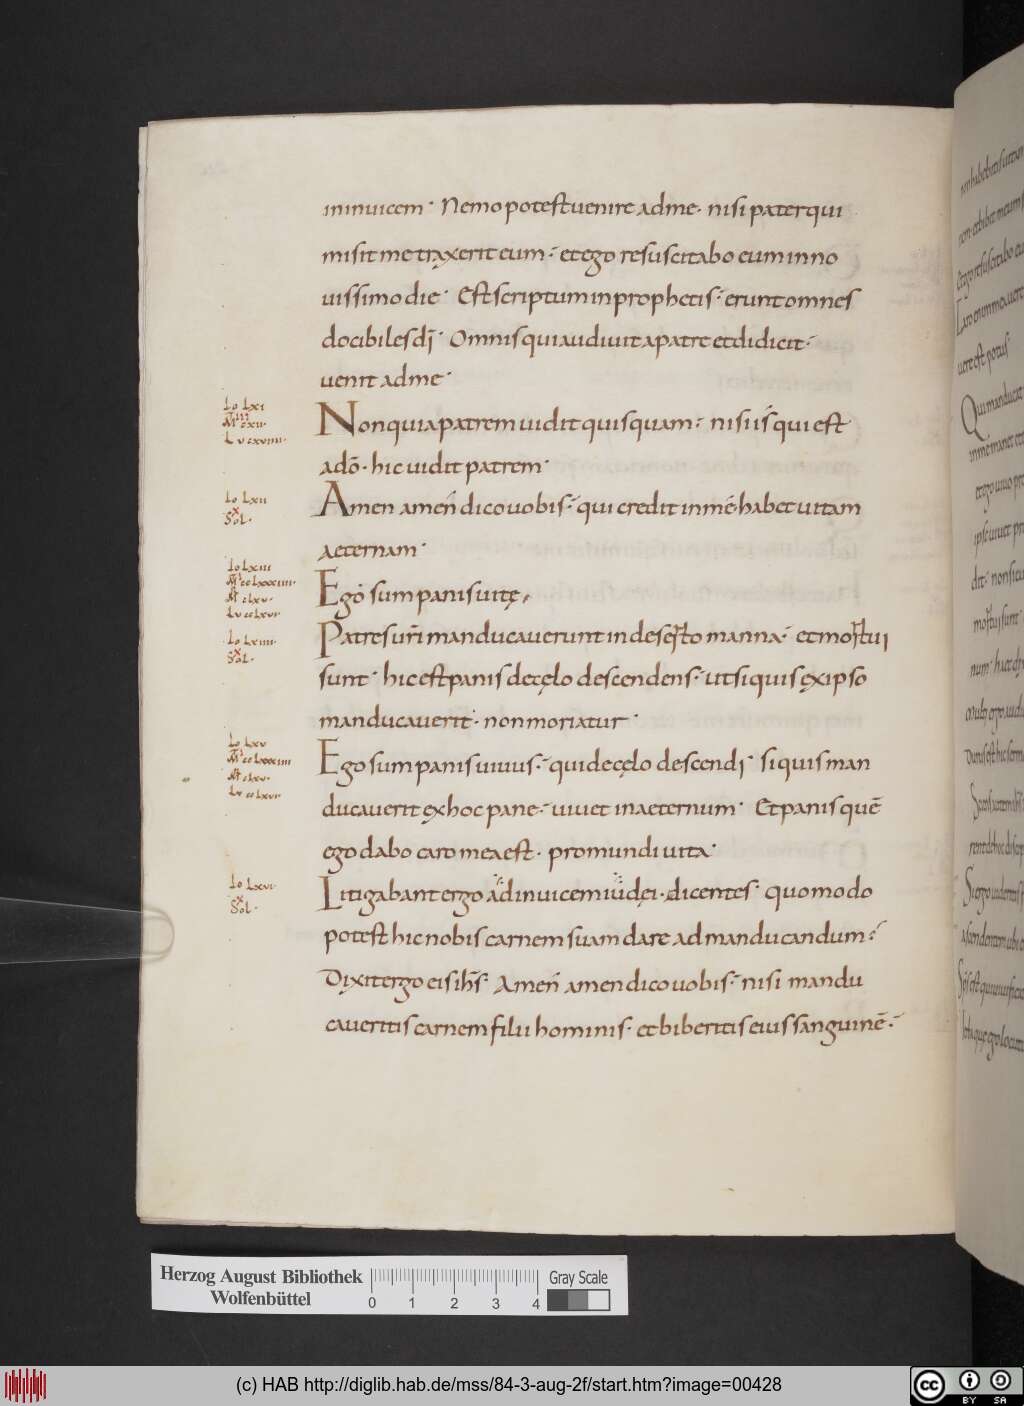 ininuicem· Nemo potest uenire ad me· nisi pater qui
misit me traxerit eum·́ et ego resuscitabo eum in no
uissimo die· Est scriptum in prophetis·́ erunt omnes
docibiles dī· Omnis qui audiuit a patre et didicit·́
uenit ad me·
Io Lxi
Lu cxuiiii·
Non quia patrem uidit quisquam·́ nisi is qui est
a dō· hic uidit patrem·
Io Lxii
Sol·
Amen amen dico uobis·́ qui credit in mē habet uitam
aeternam·
Io Lxiii
Mt ccLxxxiiii·
Mr cLxu·
Lu ccLxui·
Ego sum panis uitę,
Io Lxiiii·
Sol·
Patres uri manducauerunt in deserto manna·́ et mortui
sunt· hic est panis de cęlo descendens·́ ut si quis ex ipso
manducauerit· non moriatur·
Io Lxu
Mt ccLxxxiiii
Mr cLxu·
Lu ccLxui
Ego sum panis uiuus·́ qui de cęlo descendi· si quis man
ducauerit ex hoc pane·́ uiuet in aeternum· Et panis quē
ego dabo caro mea est· pro mundi uita·
Io Lxui·
Sol·
Litigabant ergo ad inuicem iudęi· dicentes· quomodo
potest hic nobis carnem suam dare ad manducandum·́
Dixit ergo eis ihs· Amen amen dico uobis·́ nisi mandu
caueritis carnem filii hominis· et biberitis eius sanguinē·́
Herzog August Bibliothek
Wolfenbüttel
0 1 2 3 4
Gray Scale
(c) HAB http://diglib.hab.de/mss/84-3-aug-2f/start.htm?image=00428
cc BY SA